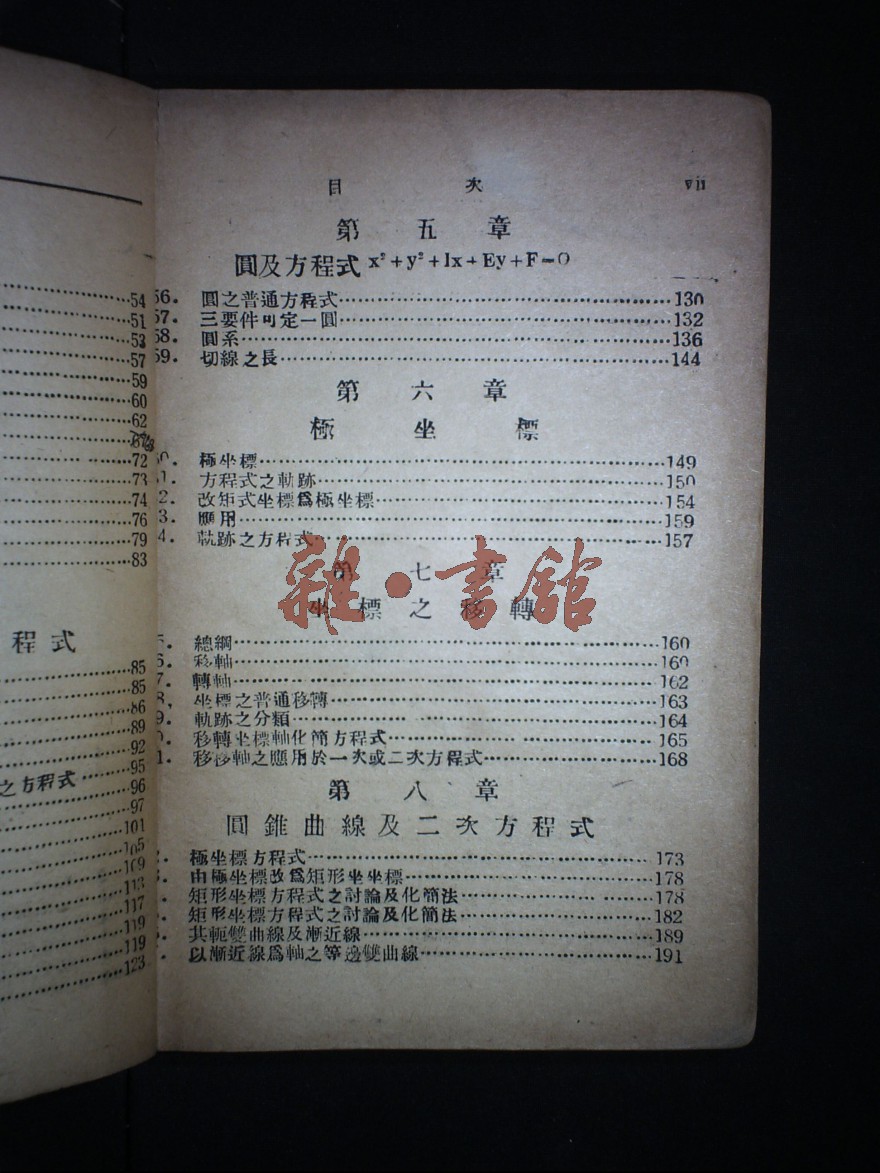 54
51
53
57
59
60
62
67
72
73
74
76
79
83
程式
85
85
86
89
92
95
之方程式 96
97
101
105
109
113
117
119
119
123
目 次 vii
第五章
圓及方程式 x²+y²+Ix+Ey+F=0
56. 圓之普通方程式 130
57. 三要件可定一圓 132
58. 圓系 136
59. 切線之長 144
第六章
極坐標
0. 極坐標 149
1. 方程式之軌跡 150
2. 改矩式坐標爲極坐標 154
3. 應用 159
4. 軌跡之方程式 157
雜·書館
第七章
坐標之移轉
5. 總綱 160
6. 移軸 160
7. 轉軸 162
8. 坐標之普通移轉 163
9. 軌跡之分類 164
0. 移轉坐標軸化簡方程式 165
1. 移移軸之應用於一次或二次方程式 168
第八章
圓錐曲線及二次方程式
2. 極坐標方程式 173
3. 由極坐標改爲矩形坐坐標 178
矩形坐標方程式之討論及化簡法 178
矩形坐標方程式之討論及化簡法 182
共軛雙曲線及漸近線 189
以漸近線爲軸之等邊雙曲線 191